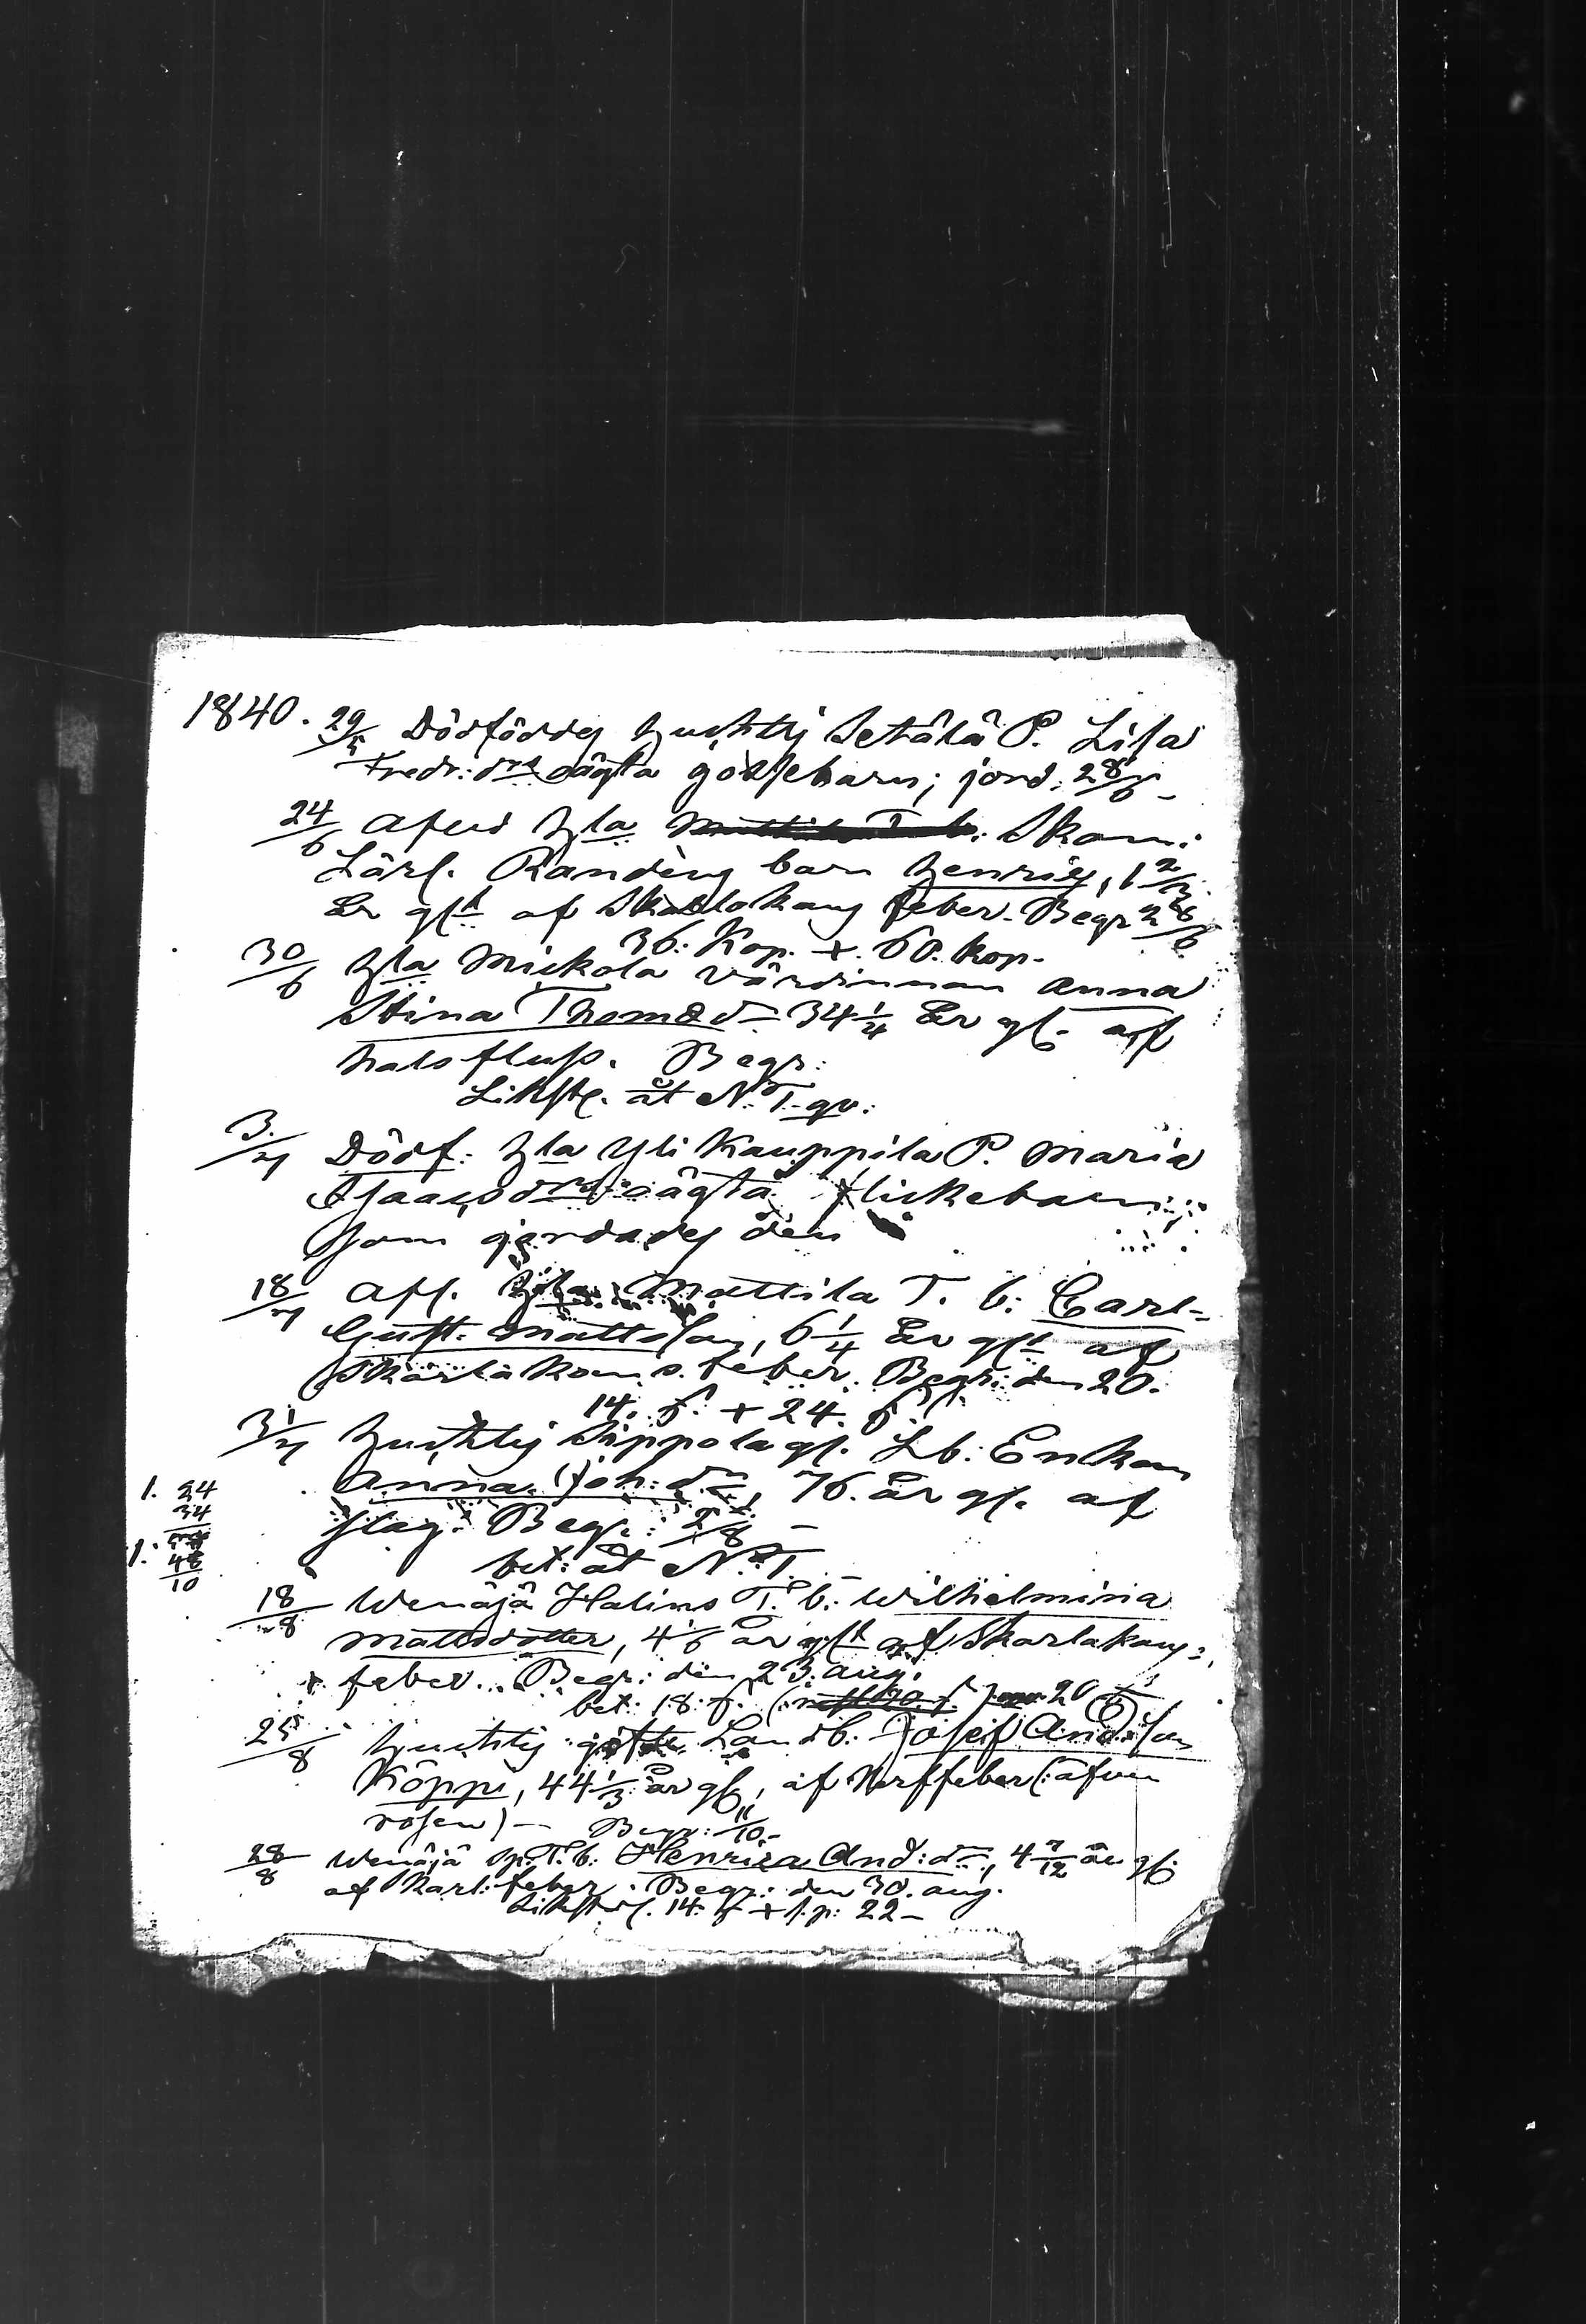 1840. 29/5 Dödföddes Huchtis Setälä P. Lisa
Fredr: drs oägta gossebarn; jord. 28/6 -
24/6 Afled Hla Skom.
Lärl. Randèns barn Henric, 1 2/3
År glt af Skarlakans feber. Begr 28/6
36. Kop. + 60. kop.
30/6 Hla Mickola värdinnan Anna
Stina Thomæ dr 34 1/4 År gl. af
halsfluss. Begr:
Likste. åt N. T. gv:
3./7 Dödf: Hla Yli Kauppila P. Maria
Isaacs drs oägta flickebarn;
som jordades den
18/7 Afl. Hla Mattila T. b: Carl-
Gust. Mattsson, 6 1/4 År glt af
Skarlakans. feber. Begr: den 20.
14. + 24.
31/7 Huchtis Sippola gl. Lb: Enkan
Anna Joh: dr, 76. år gl. af
slag. Begr: 2/8 -
bet: åt N. T.
1. 24
24
1. 48
10
18/8 Wenäjä Halims T. b: Wilhelmina
Mattsdotter, 4 1/6 år glt af Skarlakans,
feber. Begr: den 23. aug.
bet. 18. 20
25/8 Huchtis Landb: Josef And:son
Köppi, 44 1/3 år gl, af Nerffeber (äfven
rosen) - Begr: 11/10 -
28/8 Wenäjä Sp. T. b: Henrica And: dr, 4 7/12 år gl.
af Skarl: feber. Begr: den 30. aug.
14. + 22 -